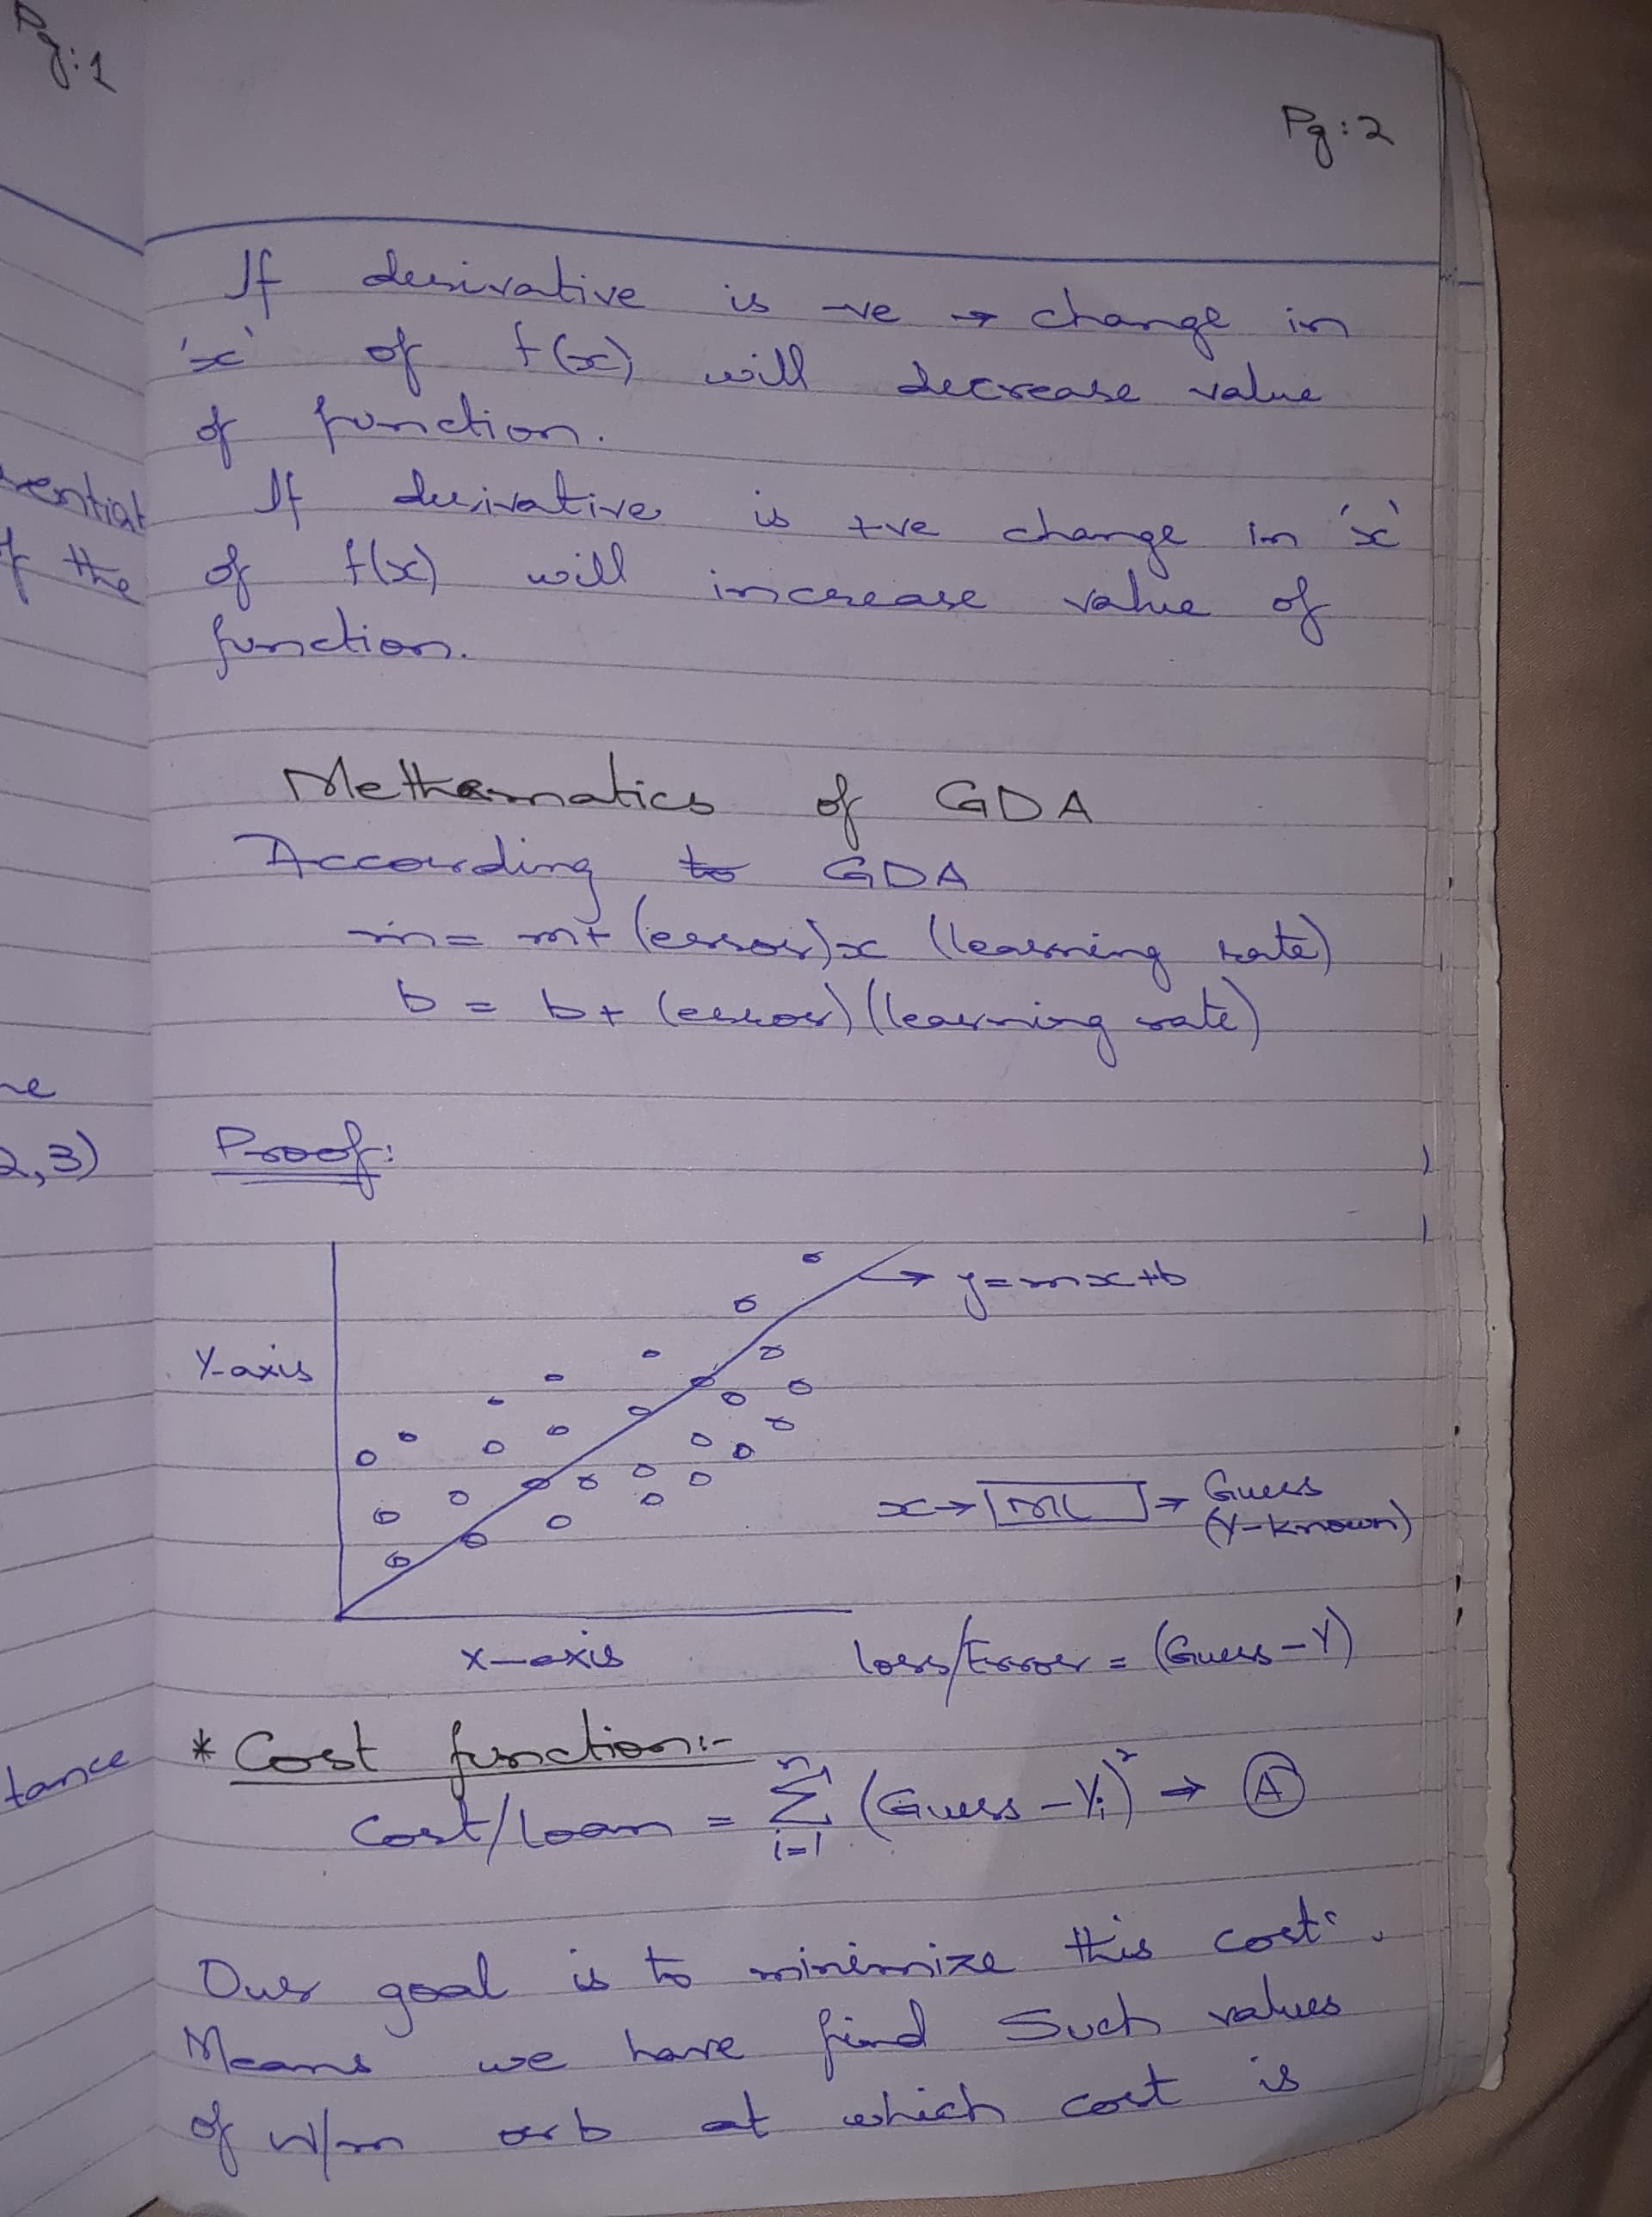 Pg:1
Pg:2
If derivative is -ve → change in
'x' of f(x) will decrease value
of function.
If derivative is +ve change in 'x'
of f(x) will increase value of
function.
Methematics of GDA
According to GDA
m = m + (error)x (learning rate)
b = b + (error) (learning rate)
Proof:
→ y=mx+b
Y-axis
x → ML → Guess
(Y-known)
X-axis
loss/Error = (Guess-Y)
* Cost function:-
Cost/Loan = Σ (Guess - Yi)² → A
n
i=1
Our goal is to minimize this cost.
Means we have find Such values
of W/m or b at which cost is
f the
2,3)
tance